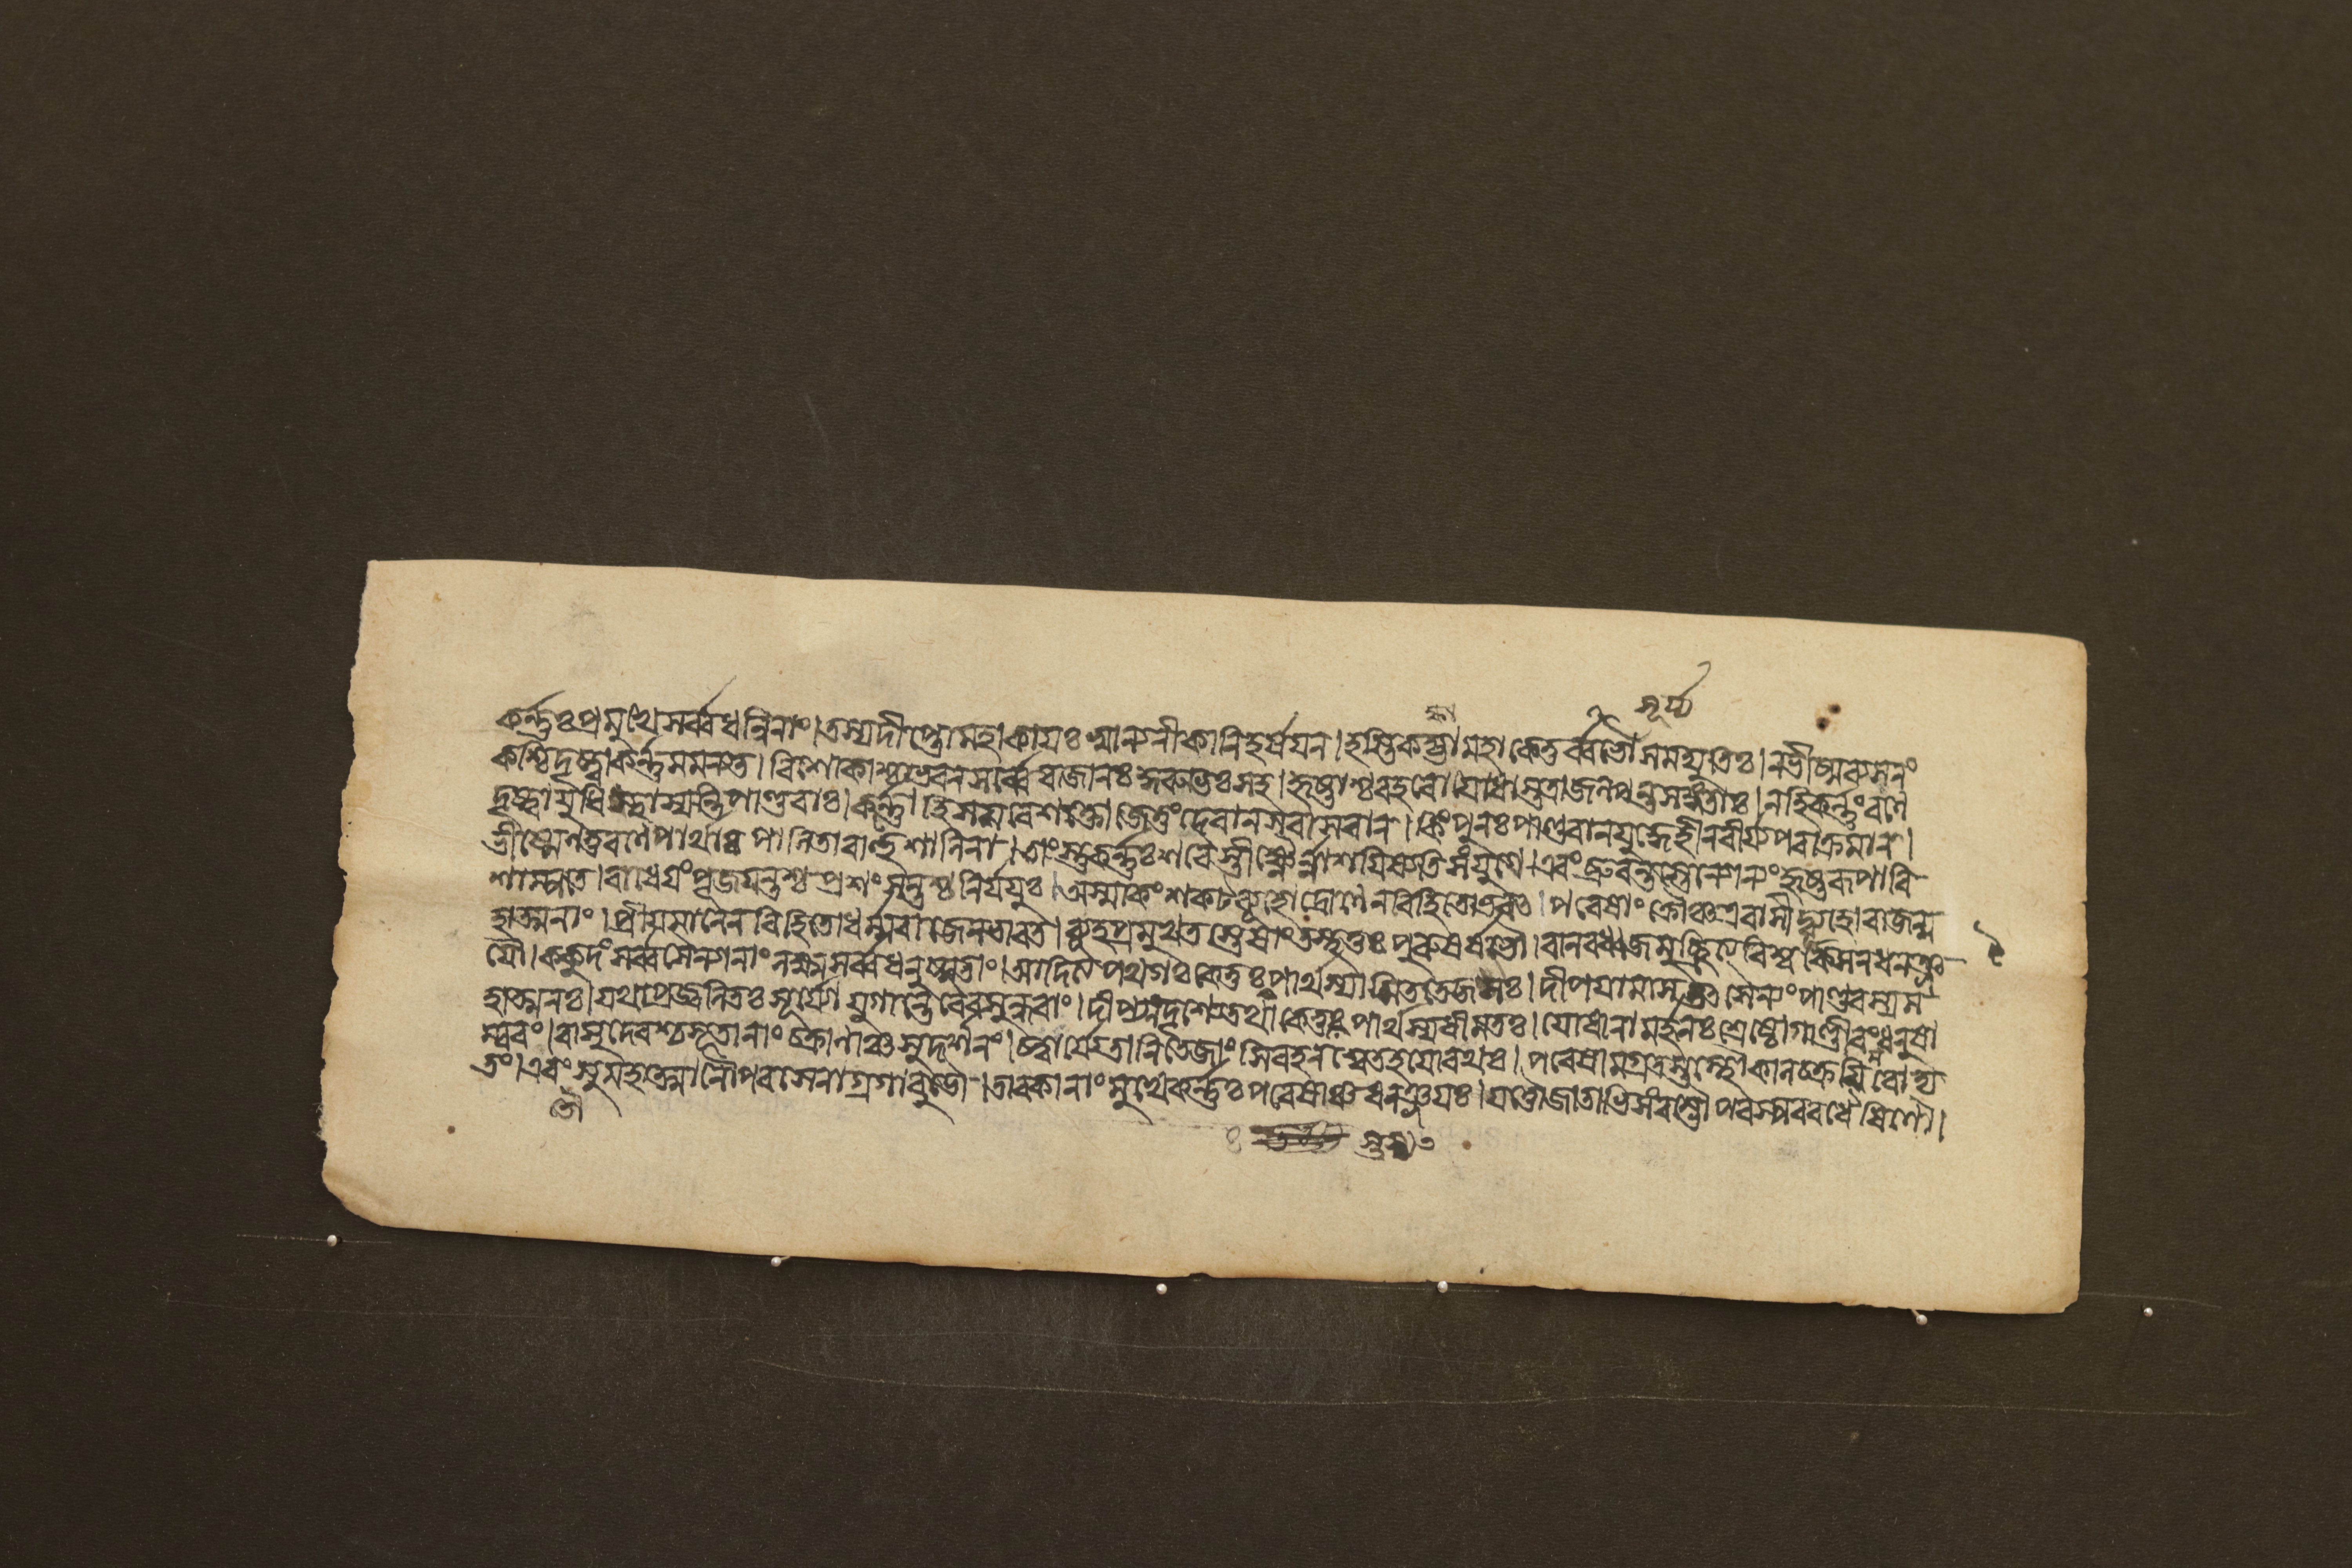 সূর্য্য
কর্ন্নঃ প্রমুখে সর্ব্বধন্বিনাং। তস্য দীপ্তো মহাকায়ঃ স্বান্যনীকানি হর্ষয়ন। হস্তিকক্ষা মহাকেতুর্ব্বভৌ সমদ্যুতিঃ। ন ভীষ্মব্যসনং
কশ্চিদ্দৃষ্ট্বা কর্ন্নমমন্যত। বিশোকাশ্চাভবন সর্ব্বে রাজানঃ কুরুভিঃ সহ। হৃষ্টাশ্চ বহবো যোধাস্তত্রাজল্পন্ত সঙ্গতাঃ। নহি কর্ন্নং রণে
দৃষ্ট্বা যুধি স্থাস্যন্তি পাণ্ডবাঃ। কর্ন্নো হি সমরে শক্তো জেতুং দেবান সবাসবান। কিং পুনঃ পাণ্ডবান যুদ্ধে হীনবীর্য্যপরাক্রমান।
ভীষ্মেণ তু রণে পার্থাঃ পালিতা বাহুশালিনা। তাংস্তু কর্ন্নঃ শরৈস্তীক্ষ্ণৈর্ন্নাশয়িষ্যতি সংযুগে। এবং ব্রুবন্তস্তেন্যোন্যং হৃষ্টরূপা বি
শাম্পতে। রাধেয়ং পূজয়ন্তশ্চ প্রশংসন্তশ্চ নির্যযুঃ। অস্মাকং শকটব্যূহো দ্রোণেন বিহিতোভবৎ। পরেষাং ক্রৌঞ্চ এবাসীদ্ব্যূহো রাজন্ম
হাত্মনাং। প্রীয়মানেন বিহিতো ধর্ম্মরাজেন ভারত। ব্যূহপ্রমুখতস্তেষাং তস্থতুঃ পুরুষর্ষভৌ। বানরধ্বজমুচ্ছ্রিত্য বিশ্বক্সেনধনঞ্জ
যৌ। ককুদং সর্ব্বসৈন্যানাং লক্ষ্ম সর্ব্বধনুষ্মতাং। আদিত্যপথগঃ কেতুঃ পার্থস্যামিততেজসঃ। দীপয়ামাস তৎ সৈন্যং পাণ্ডবস্য ম
হাত্মনঃ। যথা প্রজ্বলিতঃ সূর্য্যো যুগান্তে বৈ বসুন্ধরাং। দীপ্যন্দৃশ্যেত তথা কেতুঃ পার্থস্য ধীমতঃ। যোধানামর্জ্জুনঃ শ্রেষ্ঠো গাণ্ডীবং ধনুষা
ম্বরং। বাসুদেবশ্চ ভূতানাং চক্রানাঞ্চ সুদর্শনং। চত্বার্য্যেতানি তেজাংসি বহন শ্বেতহয়ো রথঃ। পরেষামগ্রতস্তস্থৌ কালচক্রমিবোদ্য
তং। এবং সুমহাত্মানৌ পরসেনাগ্রগাবুভৌ। তাবকানাং মুখে কর্ন্নঃ পরেষাঞ্চ ধনঞ্জয়ঃ। ততো জাতাভিসংরম্ভৌ পরস্পরবধৈষিণৌ।
তৌ